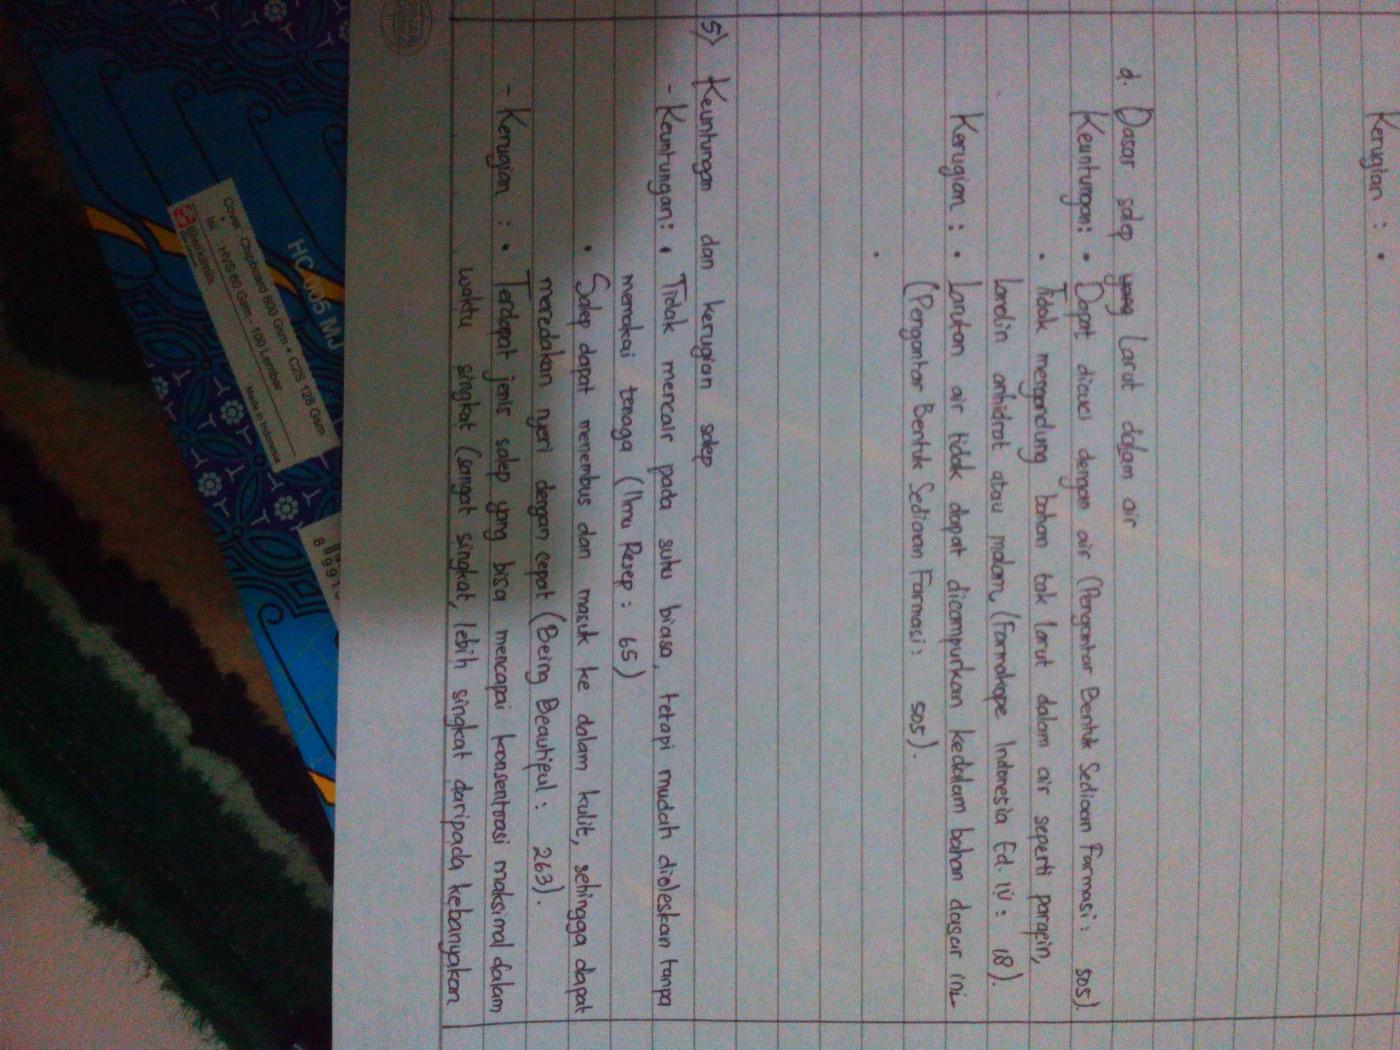 Kerugian : •
d. Dasar salep yang larut dalam air
Keuntungan: • Dapat dicuci dengan air (Pengantar Bentuk Sediaan Farmasi: 505)
• Tidak mengandung bahan tak larut dalam air seperti parapin,
lanolin anhidrat atau malam, (Farmakope Indonesia Ed. IV: 18).
Kerugian : • Larutan air tidak dapat dicampurkan kedalam bahan dasar ini
(Pengantar Bentuk Sediaan Farmasi: 505).
•
5) Keuntungan dan kerugian salep
- Keuntungan: • Tidak mencair pada suhu biasa, tetapi mudah dioleskan tanpa
memakai tenaga (Ilmu Resep : 65)
• Salep dapat menembus dan masuk ke dalam kulit, sehingga dapat
meredakan nyeri dengan cepat (Being Beautiful : 263).
- Kerugian : • Terdapat jenis salep yang bisa mencapai konsentrasi maksimal dalam
waktu singkat (sangat singkat, lebih singkat daripada kebanyakan
HC-005 MJ
Cover Chipboard 800 Gsm + C2S 128 Gsm
Isi HVS 60 Gsm - 100 Lembar
Made in Indonesia